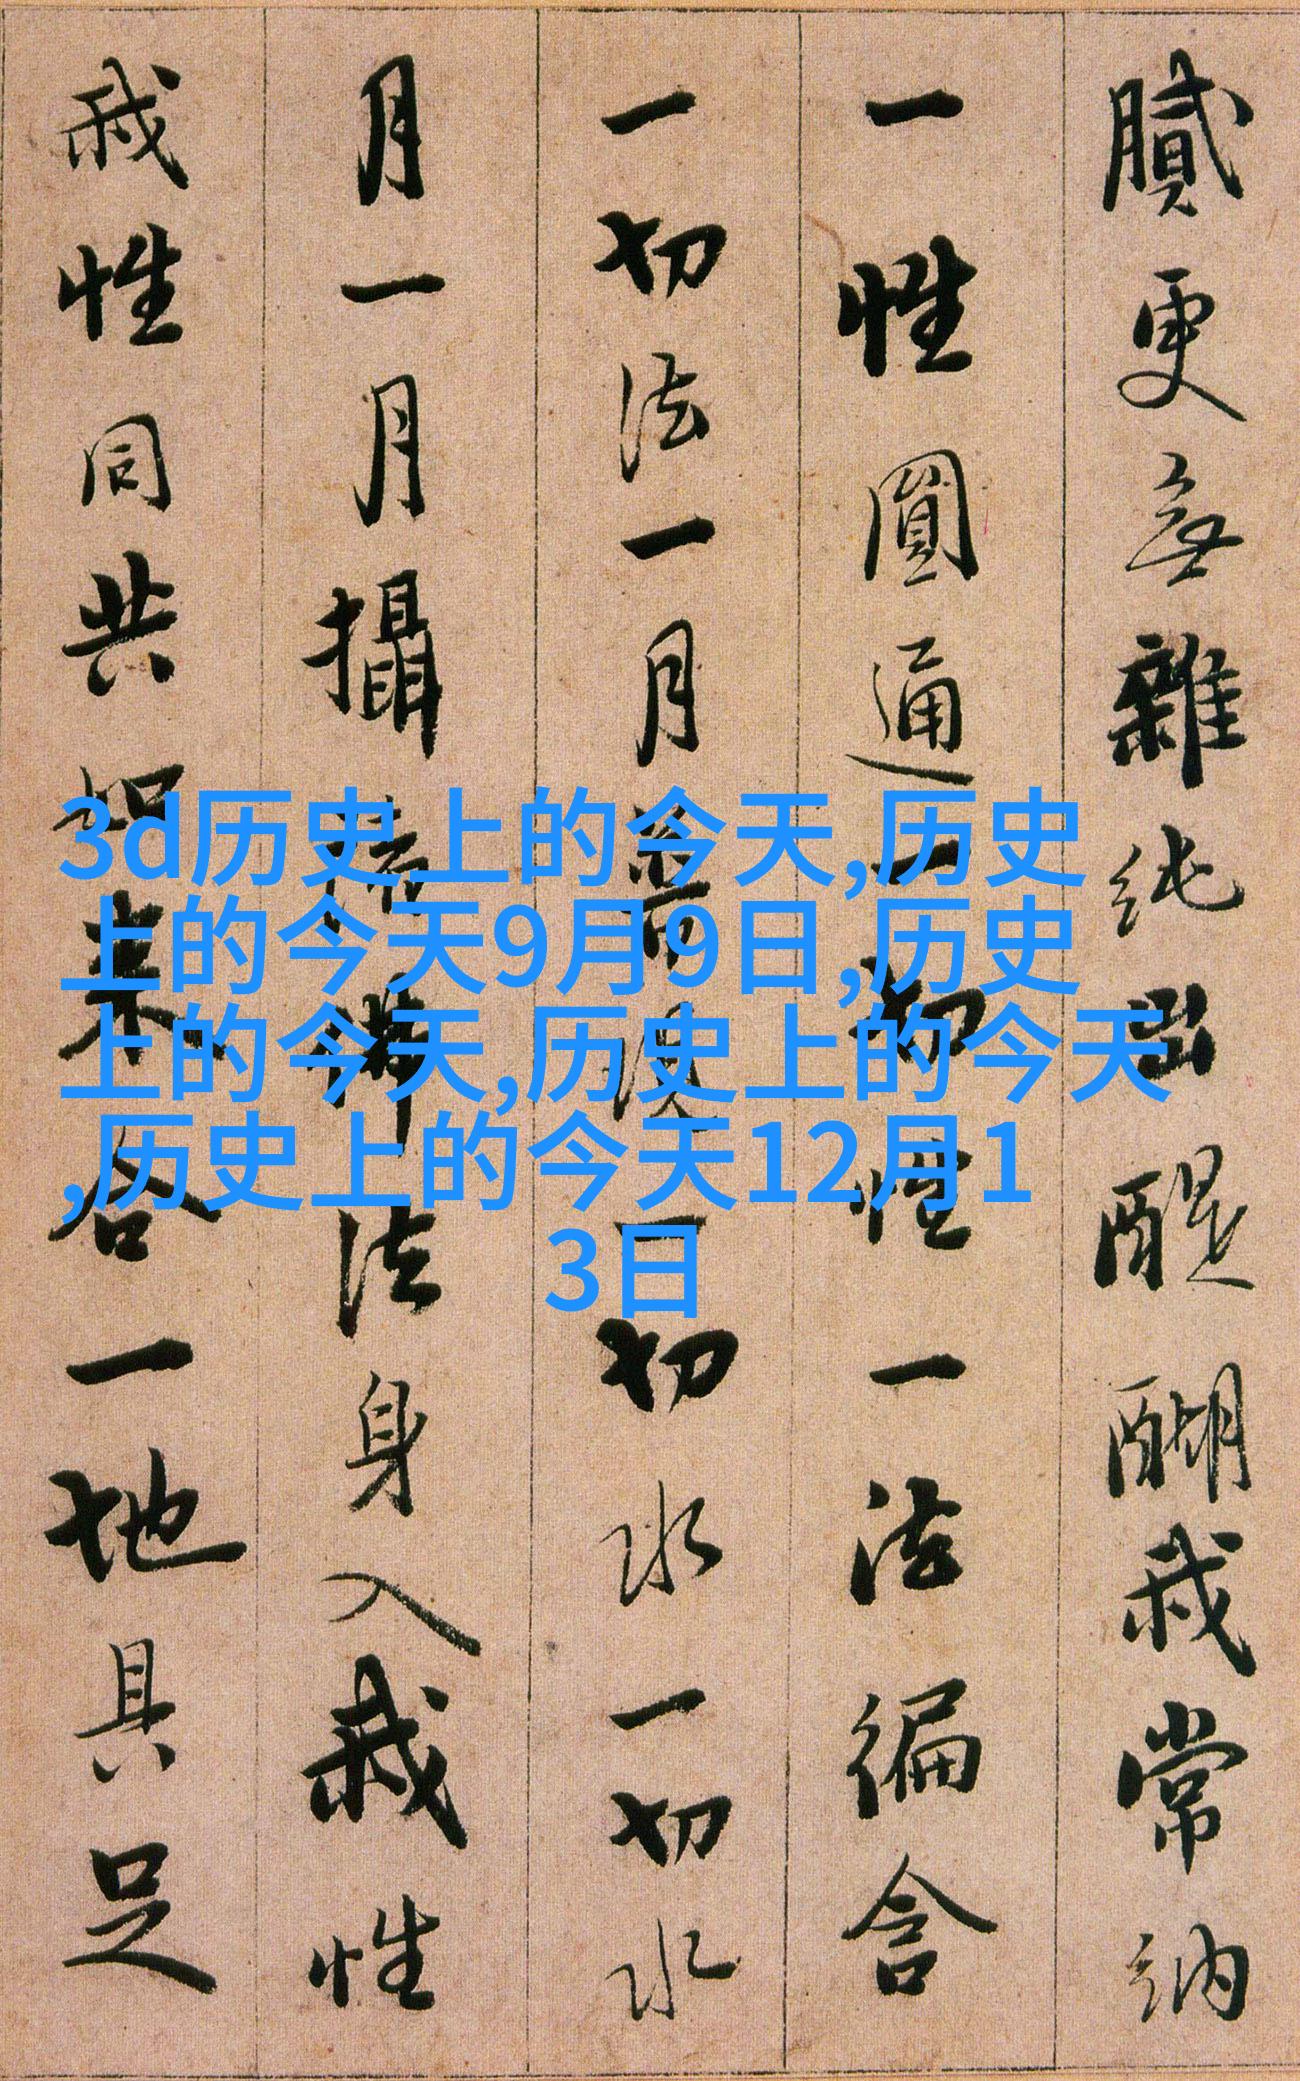 膩更無雜純出醍醐我常納
一性圓通一切性一法徧含
一切法一月普現一切水一切水
月一月攝諸佛法身入我性
我性同共如來合一地具足
3d历史上的今天,历史
上的今天9月9日,历史
上的今天,历史上的今天
,历史上的今天12月1
3日